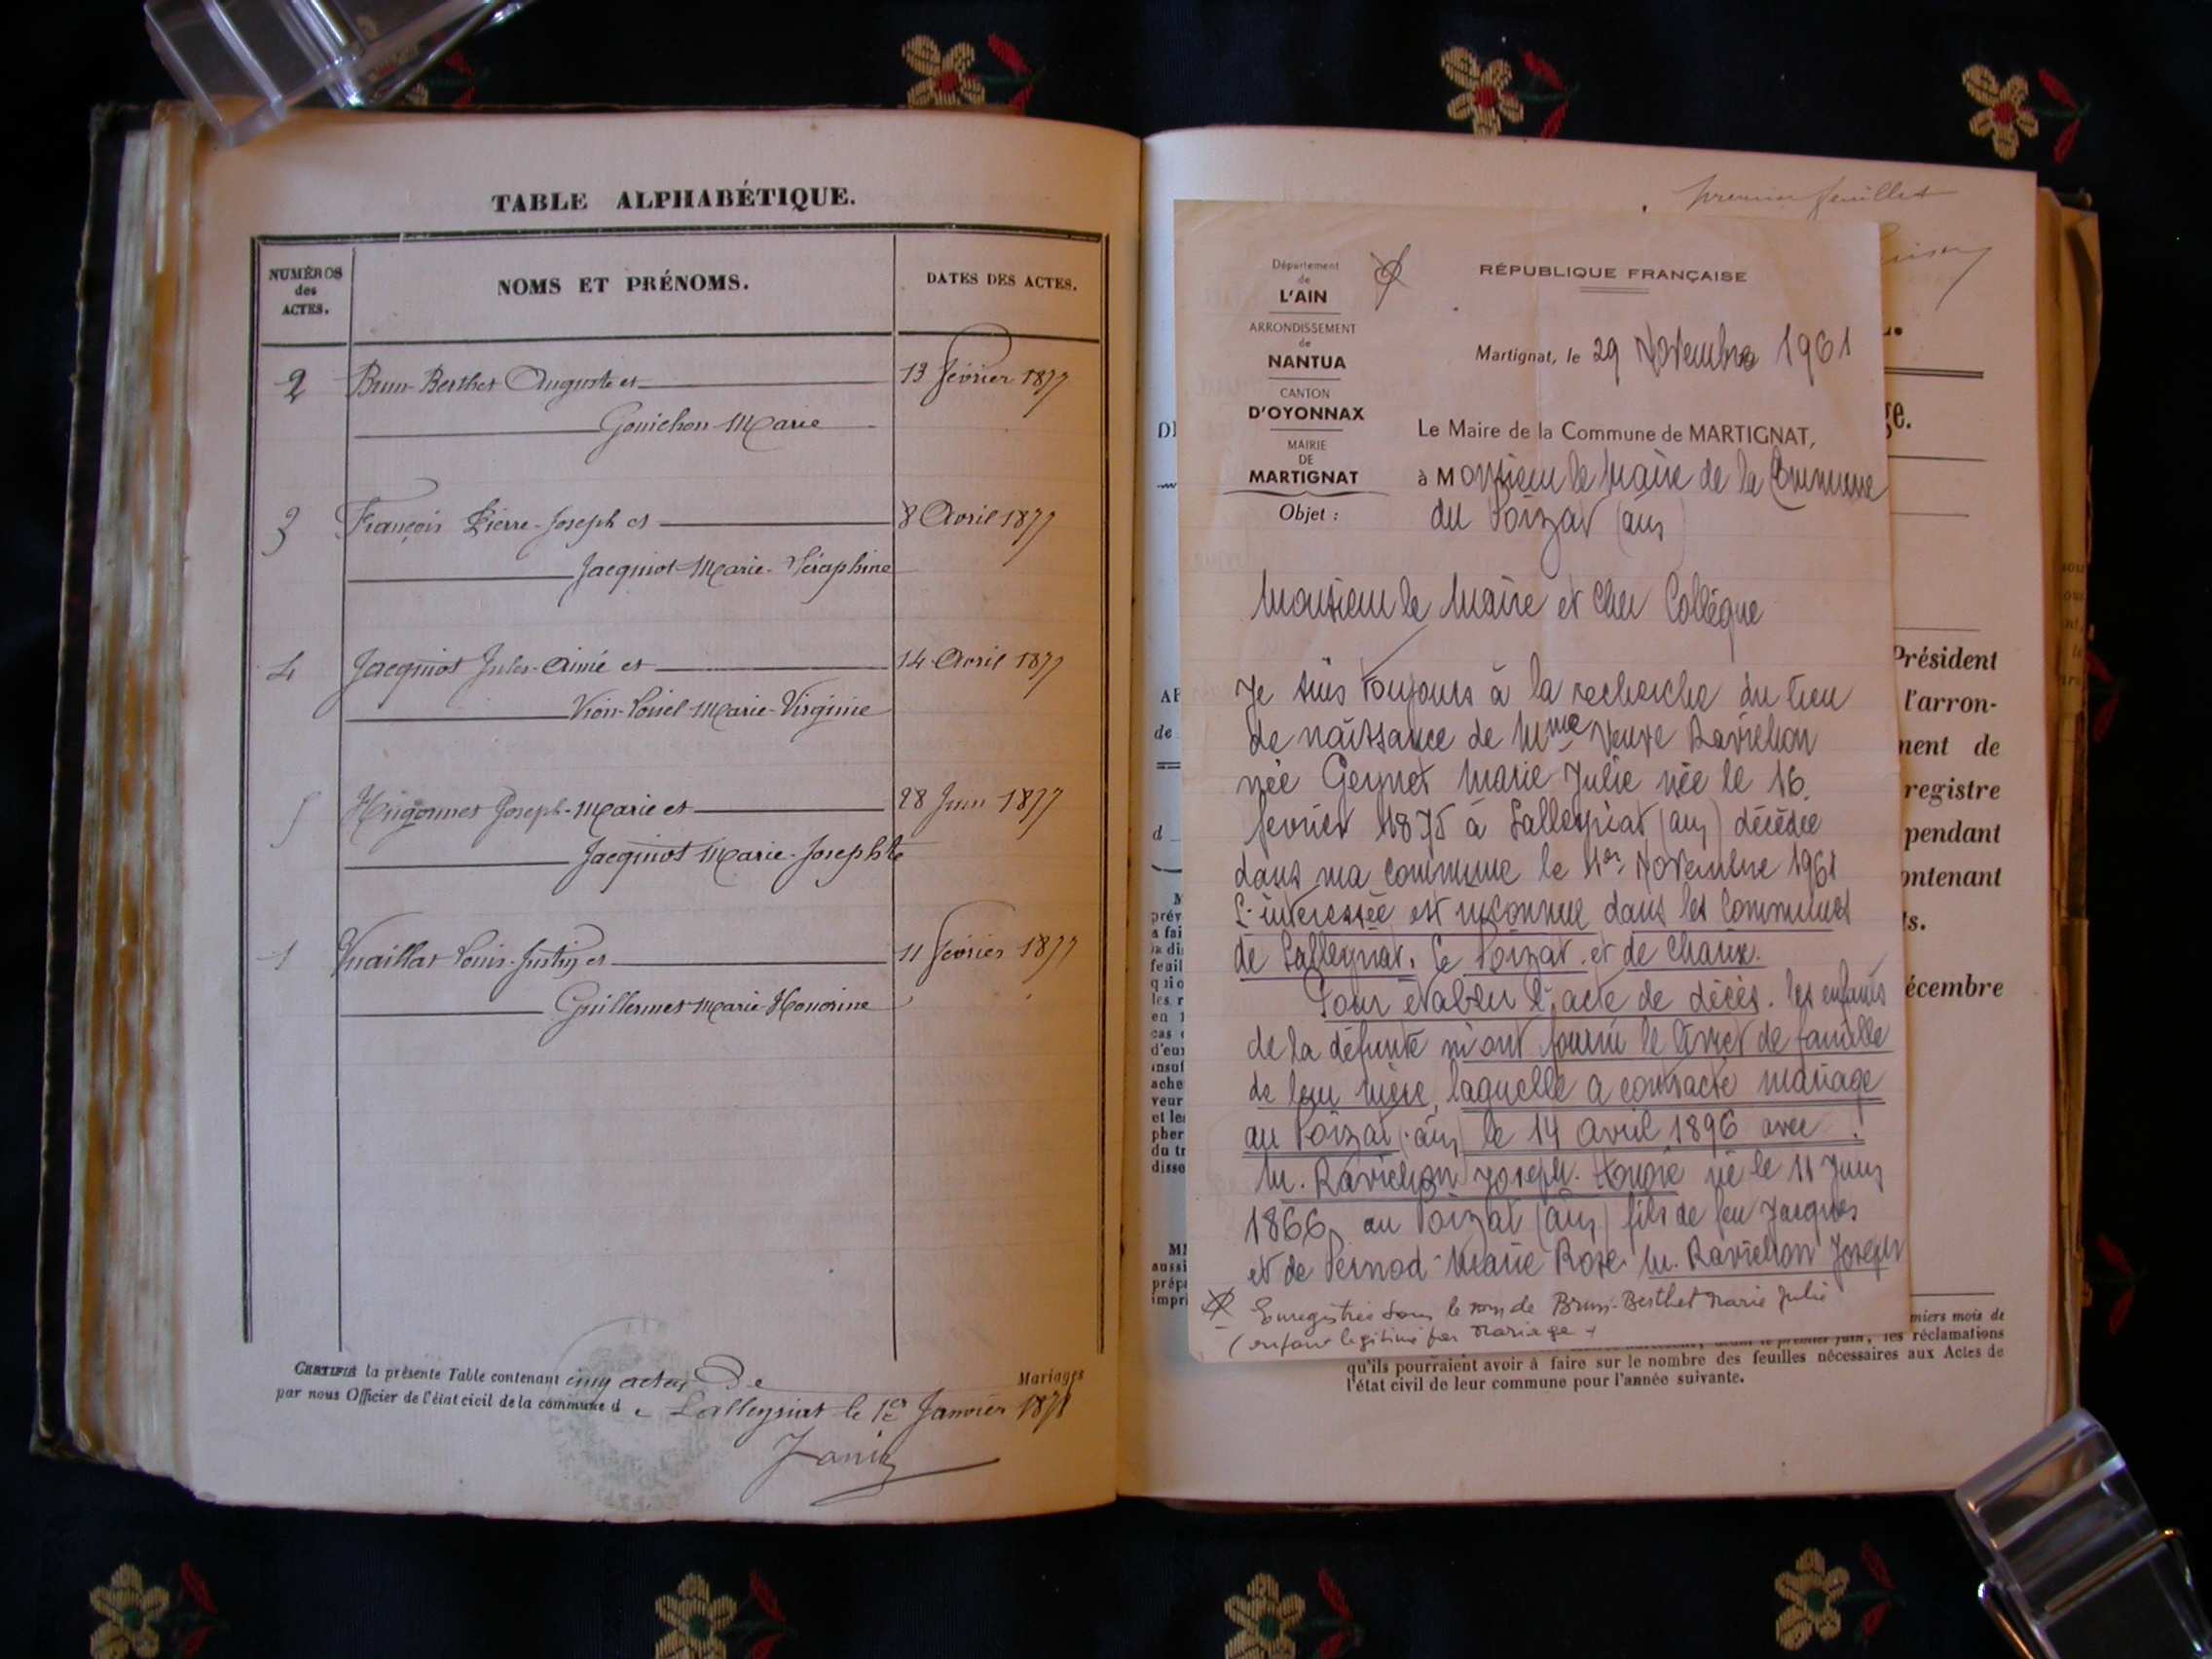 TABLE ALPHABÉTIQUE.
NUMÉROS des ACTES.
NOMS ET PRÉNOMS.
DATES DES ACTES.
2 Brun-Berthet Auguste et 13 février 1877
Gonichon Marie
3 François Pierre-Joseph et 8 Avril 1877
Jacquiot Marie-Séraphine
4 Jacquiot Jules-Aimé et 14 Avril 1877
Vion-Loisel Marie-Virginie
5 Hugonnet Joseph-Marie et 28 Juin 1877
Jacquiot Marie-Josephte
1 Vuaillat Louis-Justin et 11 février 1877
Guillermet Marie-Honorine
CERTIFIÉ la présente Table contenant cinq actes de Mariages
par nous Officier de l'état civil de la commune de Lalleyriat le 1er Janvier 1878
premier feuillet
Département
de
L'AIN
ARRONDISSEMENT
de
NANTUA
CANTON
D'OYONNAX
MAIRIE
DE
MARTIGNAT
Objet :
RÉPUBLIQUE FRANÇAISE
Martignat, le 29 Novembre 1961
Le Maire de la Commune de MARTIGNAT,
à Monsieur le Maire de la Commune
du Poizat (ain)
Monsieur le Maire et Cher Collègue
Je suis toujours à la recherche du lieu
de naissance de Mme Veuve Ravichon
née Geynet Marie Julie née le 16
février 1875 à Lalleyriat (ain) décédée
dans ma commune le 1er Novembre 1961
L'intéressée est inconnue dans les Communes
de Lalleyriat, le Poizat et de Chaux.
Pour établir l'acte de décès. les enfants
de la défunte m'ont fourni le livret de famille
de leur mère, laquelle a contracté mariage
au Poizat (ain) le 14 avril 1896 avec
M. Ravichon Joseph. Honoré né le 11 Juin
1866 au Poizat (ain) fils de feu Jacques
et de Pernod Marie Rose. M. Ravichon Joseph
Enregistrée sous le nom de Brun-Berthet Marie Julie
(enfant légitimé par mariage
ge.
Président
l'arron-
ment de
registre
pendant
contenant
ts.
écembre
miers mois de
les réclamations
qu'ils pourraient avoir à faire sur le nombre des feuilles nécessaires aux Actes de
l'état civil de leur commune pour l'année suivante.